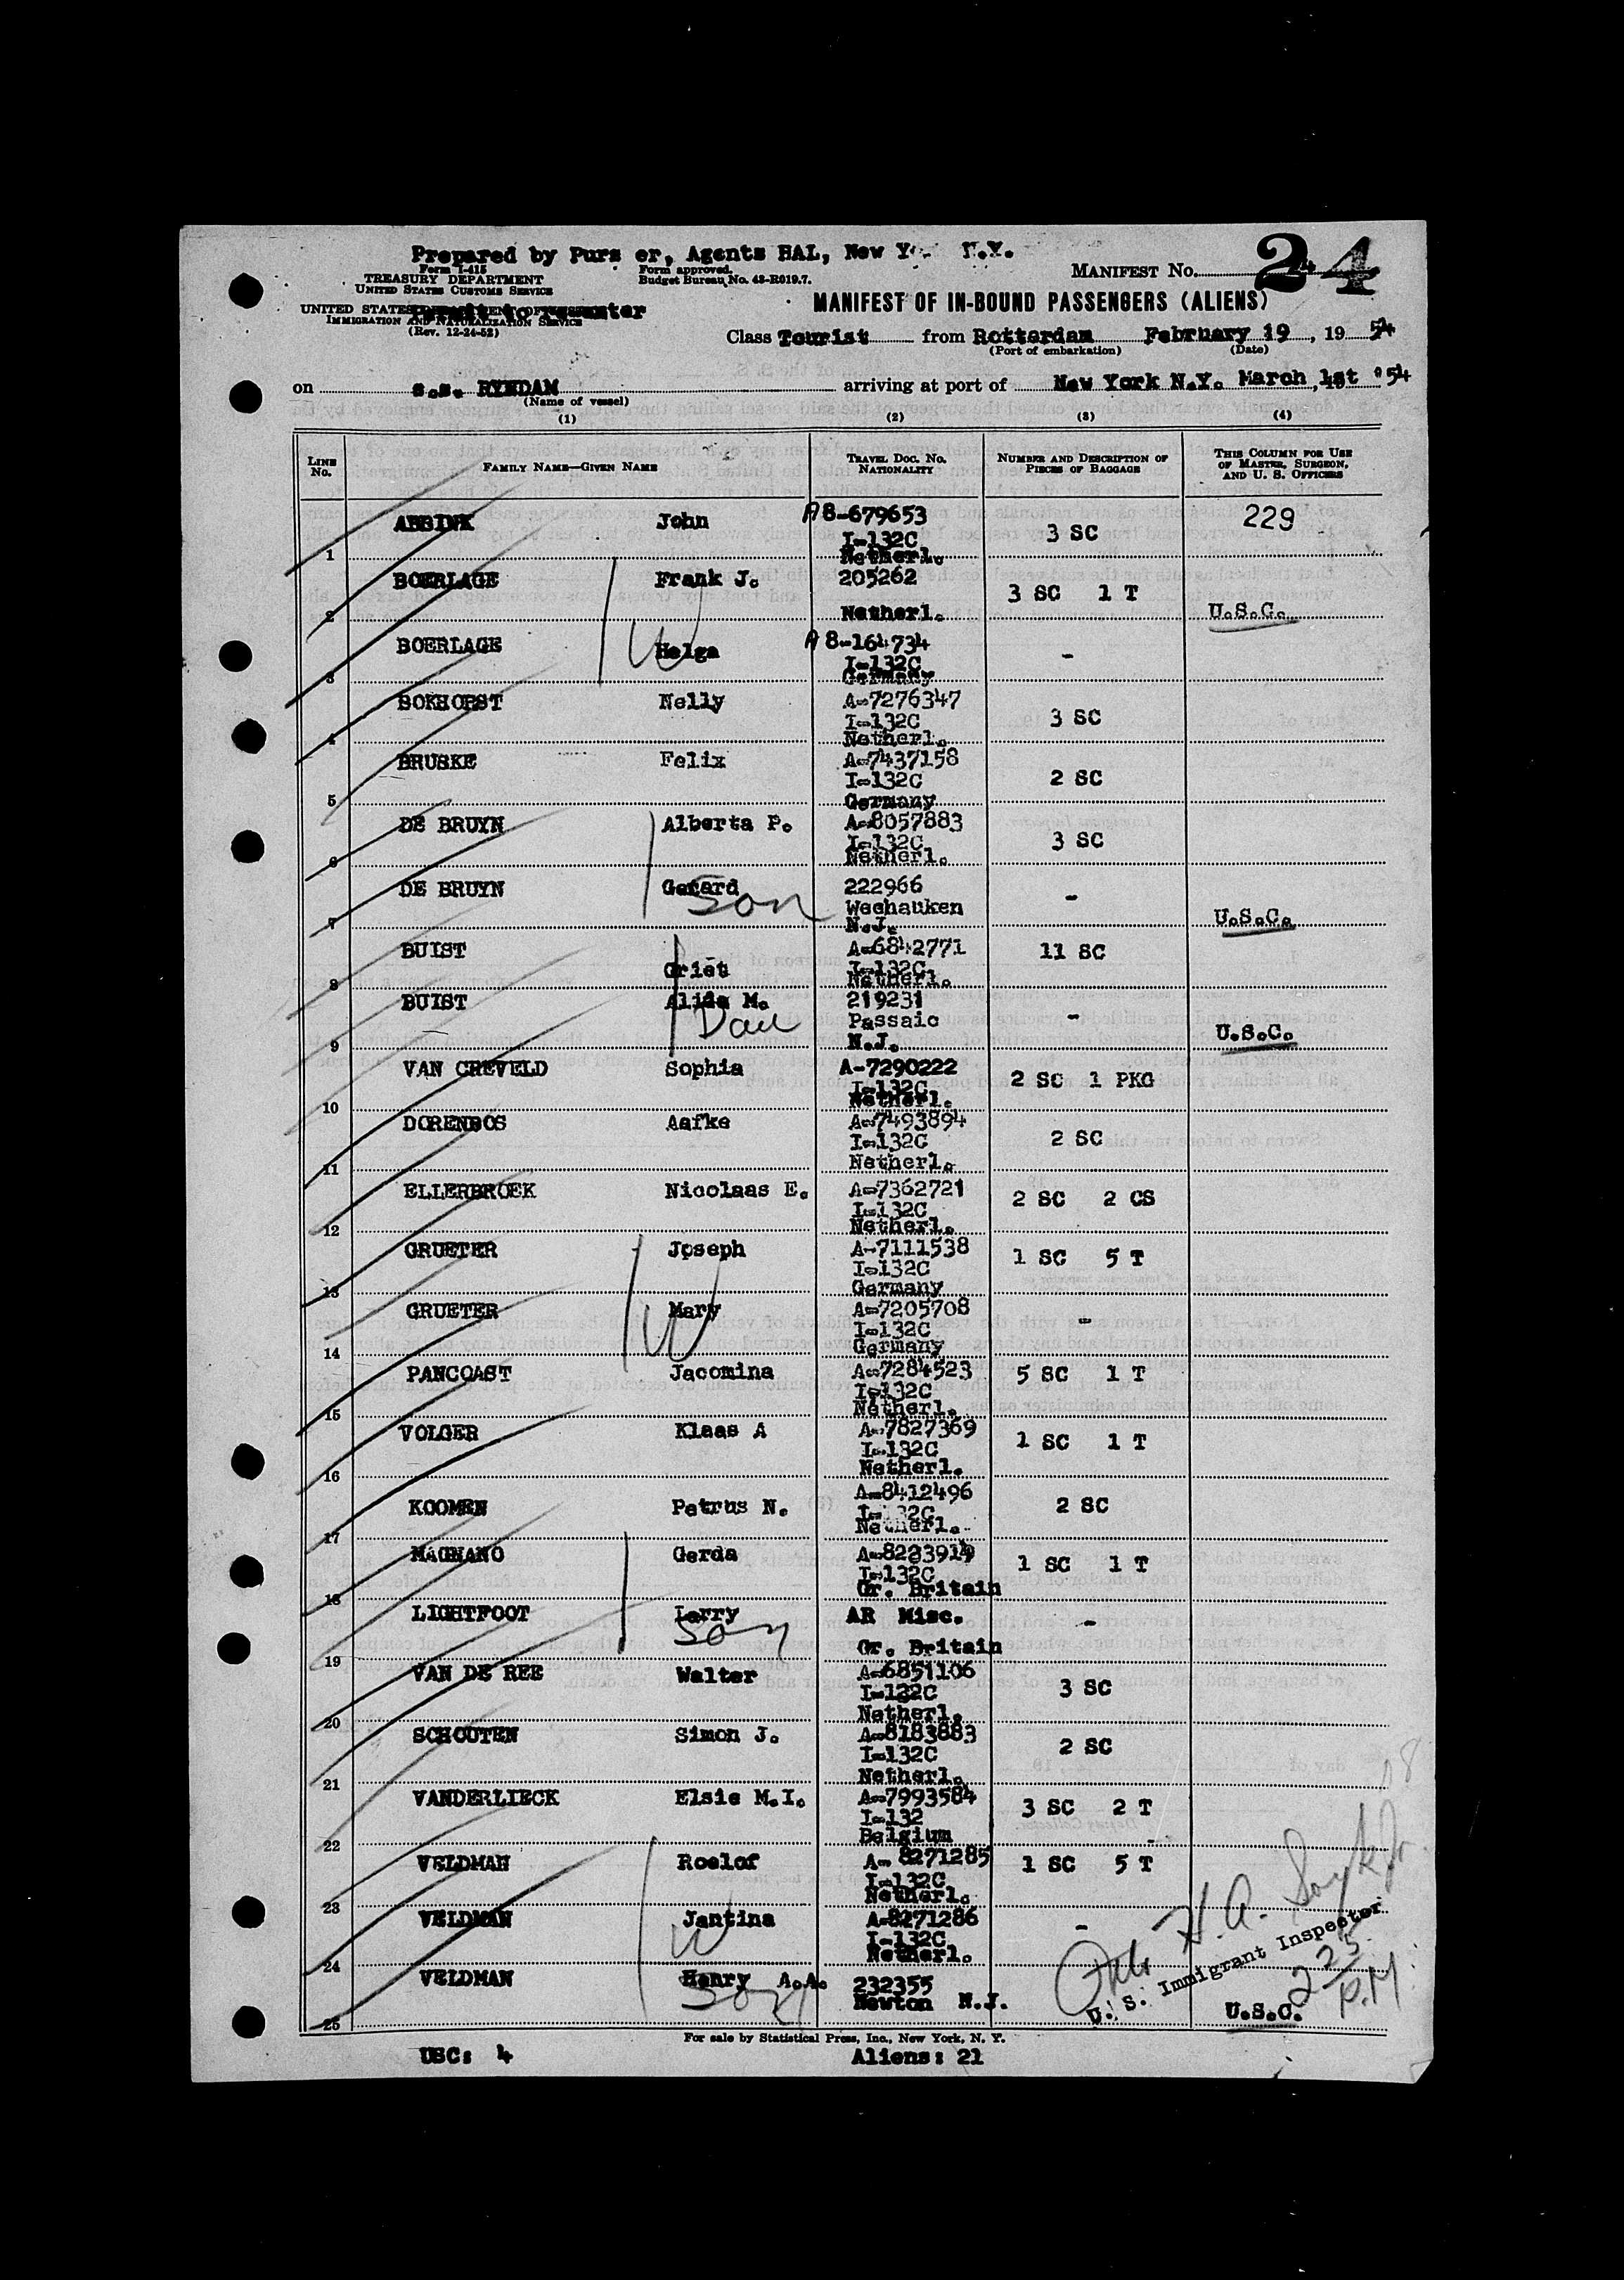 Prepared by Purs er, Agents HAL, New Y N.Y.
Form I-415
TREASURY DEPARTMENT
UNITED STATES CUSTOMS SERVICE
Form approved.
Budget Bureau No. 43-R019.7.
MANIFEST NO. 24
UNITED STATES
IMMIGRATION AND NATURALIZATION SERVICE
(Rev. 12-24-52)
Permit to reenter
MANIFEST OF IN-BOUND PASSENGERS (ALIENS)
Class Tourist from Rotterdam February 19, 19 54
(Port of embarkation) (Date)
on s.s. RYNDAM arriving at port of New York N.Y. March 1st '54
(Name of vessel)
(1) (2) (3) (4)
LINE NO. FAMILY NAME—GIVEN NAME TRAVEL DOC. NO. NATIONALITY NUMBER AND DESCRIPTION OF PIECES OF BAGGAGE THIS COLUMN FOR USE OF MASTER, SURGEON, AND U. S. OFFICERS
1 ABBINK John A8-679653 I-132C Netherl. 3 SC 229
2 BOERLAGE Frank J. 205262 Netherl. 3 SC 1 T U.S.C.
3 BOERLAGE Helga W A8-164734 I-132C Germany -
4 BOKHORST Nelly A-7276347 I-132C Netherl. 3 SC
5 BRUSKE Felix A-7437158 I-132C Germany 2 SC
6 DE BRUYN Alberta P. A-8057883 I-132C Netherl. 3 SC
7 DE BRUYN Gerard Son 222966 Weehauken N.J. - U.S.C.
8 BUIST Griet A-6842771 I-132C Netherl. 11 SC
9 BUIST Alida M. Dau 219231 Passaic N.J. - U.S.C.
10 VAN CREVELD Sophia A-7290222 I-132C Netherl. 2 SC 1 PKG
11 DORENBOS Aafke A-7493894 I-132C Netherl. 2 SC
12 ELLERBROEK Nicolaas E. A-7362721 I-132C Netherl. 2 SC 2 CS
13 GRUETER Joseph A-7111538 I-132C Germany 1 SC 5 T
14 GRUETER Mary W A-7205708 I-132C Germany -
15 PANCOAST Jacomina A-7284523 I-132C Netherl. 5 SC 1 T
16 VOLGER Klaas A A-7827369 I-132C Netherl. 1 SC 1 T
17 KOOMEN Petrus N. A-8412496 I-132C Netherl. 2 SC
18 MAGNANO Gerda A-8223914 I-132C Gr. Britain 1 SC 1 T
19 LIGHTFOOT Larry Son AR Misc. Gr. Britain -
20 VAN DE REE Walter A-6851106 I-132C Netherl. 3 SC
21 SCHOUTEN Simon J. A-8183883 I-132C Netherl. 2 SC
22 VANDERLIECK Elsie M.I. A-7993584 I-132 Belgium 3 SC 2 T
23 VELDMAN Roelof A-8271285 I-132C Netherl. 1 SC 5 T
24 VELDMAN Jantina W A-8271286 I-132C Netherl. -
25 VELDMAN Henry A.A. Son 232355 Newton N.J. U.S.C.
H. A.
U. S. Immigrant Inspector
2 25 P.M.
For sale by Statistical Press, Inc., New York, N. Y.
USC: 4 Aliens: 21